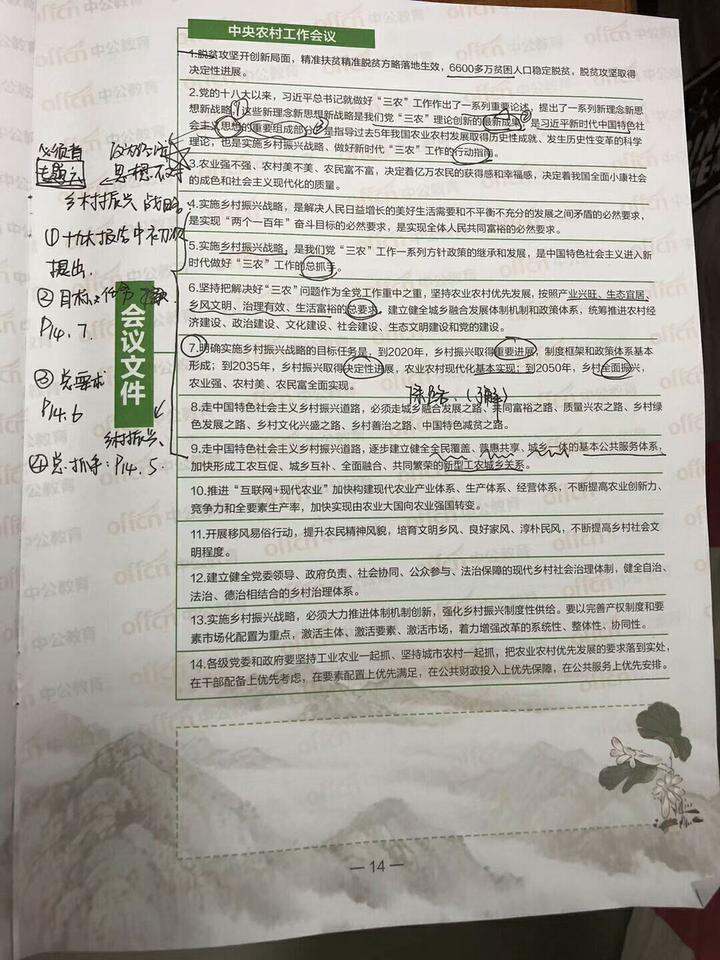 中央农村工作会议
1.脱贫攻坚开创新局面，精准扶贫精准脱贫方略落地生效，6600多万贫困人口稳定脱贫，脱贫攻坚取得
决定性进展。
2.党的十八大以来，习近平总书记就做好“三农”工作作出了一系列重要论述，提出了一系列新理念新思
想新战略。这些新理念新思想新战略是我们党“三农”理论创新的最新成果，是习近平新时代中国特色社
会主义思想的重要组成部分，是指导过去5年我国农业农村发展取得历史性成就、发生历史性变革的科学
理论，也是实施乡村振兴战略、做好新时代“三农”工作的行动指南。
3.农业强不强、农村美不美、农民富不富，决定着亿万农民的获得感和幸福感，决定着我国全面小康社会
的成色和社会主义现代化的质量。
4.实施乡村振兴战略，是解决人民日益增长的美好生活需要和不平衡不充分的发展之间矛盾的必然要求，
是实现“两个一百年”奋斗目标的必然要求，是实现全体人民共同富裕的必然要求。
5.实施乡村振兴战略，是我们党“三农”工作一系列方针政策的继承和发展，是中国特色社会主义进入新
时代做好“三农”工作的总抓手。
6.坚持把解决好“三农”问题作为全党工作重中之重，坚持农业农村优先发展，按照产业兴旺、生态宜居、
乡风文明、治理有效、生活富裕的总要求，建立健全城乡融合发展体制机制和政策体系，统筹推进农村经
济建设、政治建设、文化建设、社会建设、生态文明建设和党的建设。
7.明确实施乡村振兴战略的目标任务是，到2020年，乡村振兴取得重要进展，制度框架和政策体系基本
形成；到2035年，乡村振兴取得决定性进展，农业农村现代化基本实现；到2050年，乡村全面振兴，
农业强、农村美、农民富全面实现。
8.走中国特色社会主义乡村振兴道路，必须走城乡融合发展之路、共同富裕之路、质量兴农之路、乡村绿
色发展之路、乡村文化兴盛之路、乡村善治之路、中国特色减贫之路。
9.走中国特色社会主义乡村振兴道路，逐步建立健全全民覆盖、普惠共享、城乡一体的基本公共服务体系，
加快形成工农互促、城乡互补、全面融合、共同繁荣的新型工农城乡关系。
10.推进“互联网+现代农业”加快构建现代农业产业体系、生产体系、经营体系，不断提高农业创新力、
竞争力和全要素生产率，加快实现由农业大国向农业强国转变。
11.开展移风易俗行动，提升农民精神风貌，培育文明乡风、良好家风、淳朴民风，不断提高乡村社会文
明程度。
12.建立健全党委领导、政府负责、社会协同、公众参与、法治保障的现代乡村社会治理体制，健全自治、
法治、德治相结合的乡村治理体系。
13.实施乡村振兴战略，必须大力推进体制机制创新，强化乡村振兴制度性供给。要以完善产权制度和要
素市场化配置为重点，激活主体、激活要素、激活市场，着力增强改革的系统性、整体性、协同性。
14.各级党委和政府要坚持工业农业一起抓、坚持城市农村一起抓，把农业农村优先发展的要求落到实处，
在干部配备上优先考虑，在要素配置上优先满足，在公共财政投入上优先保障，在公共服务上优先安排。
会议文件
乡村振兴战略
①十九大报告中初次
提出.
②目标任务
P14.7.
③总要求
P14.6
乡村振兴
④总抓手：P14.5.
— 14 —
offcn 中公教育